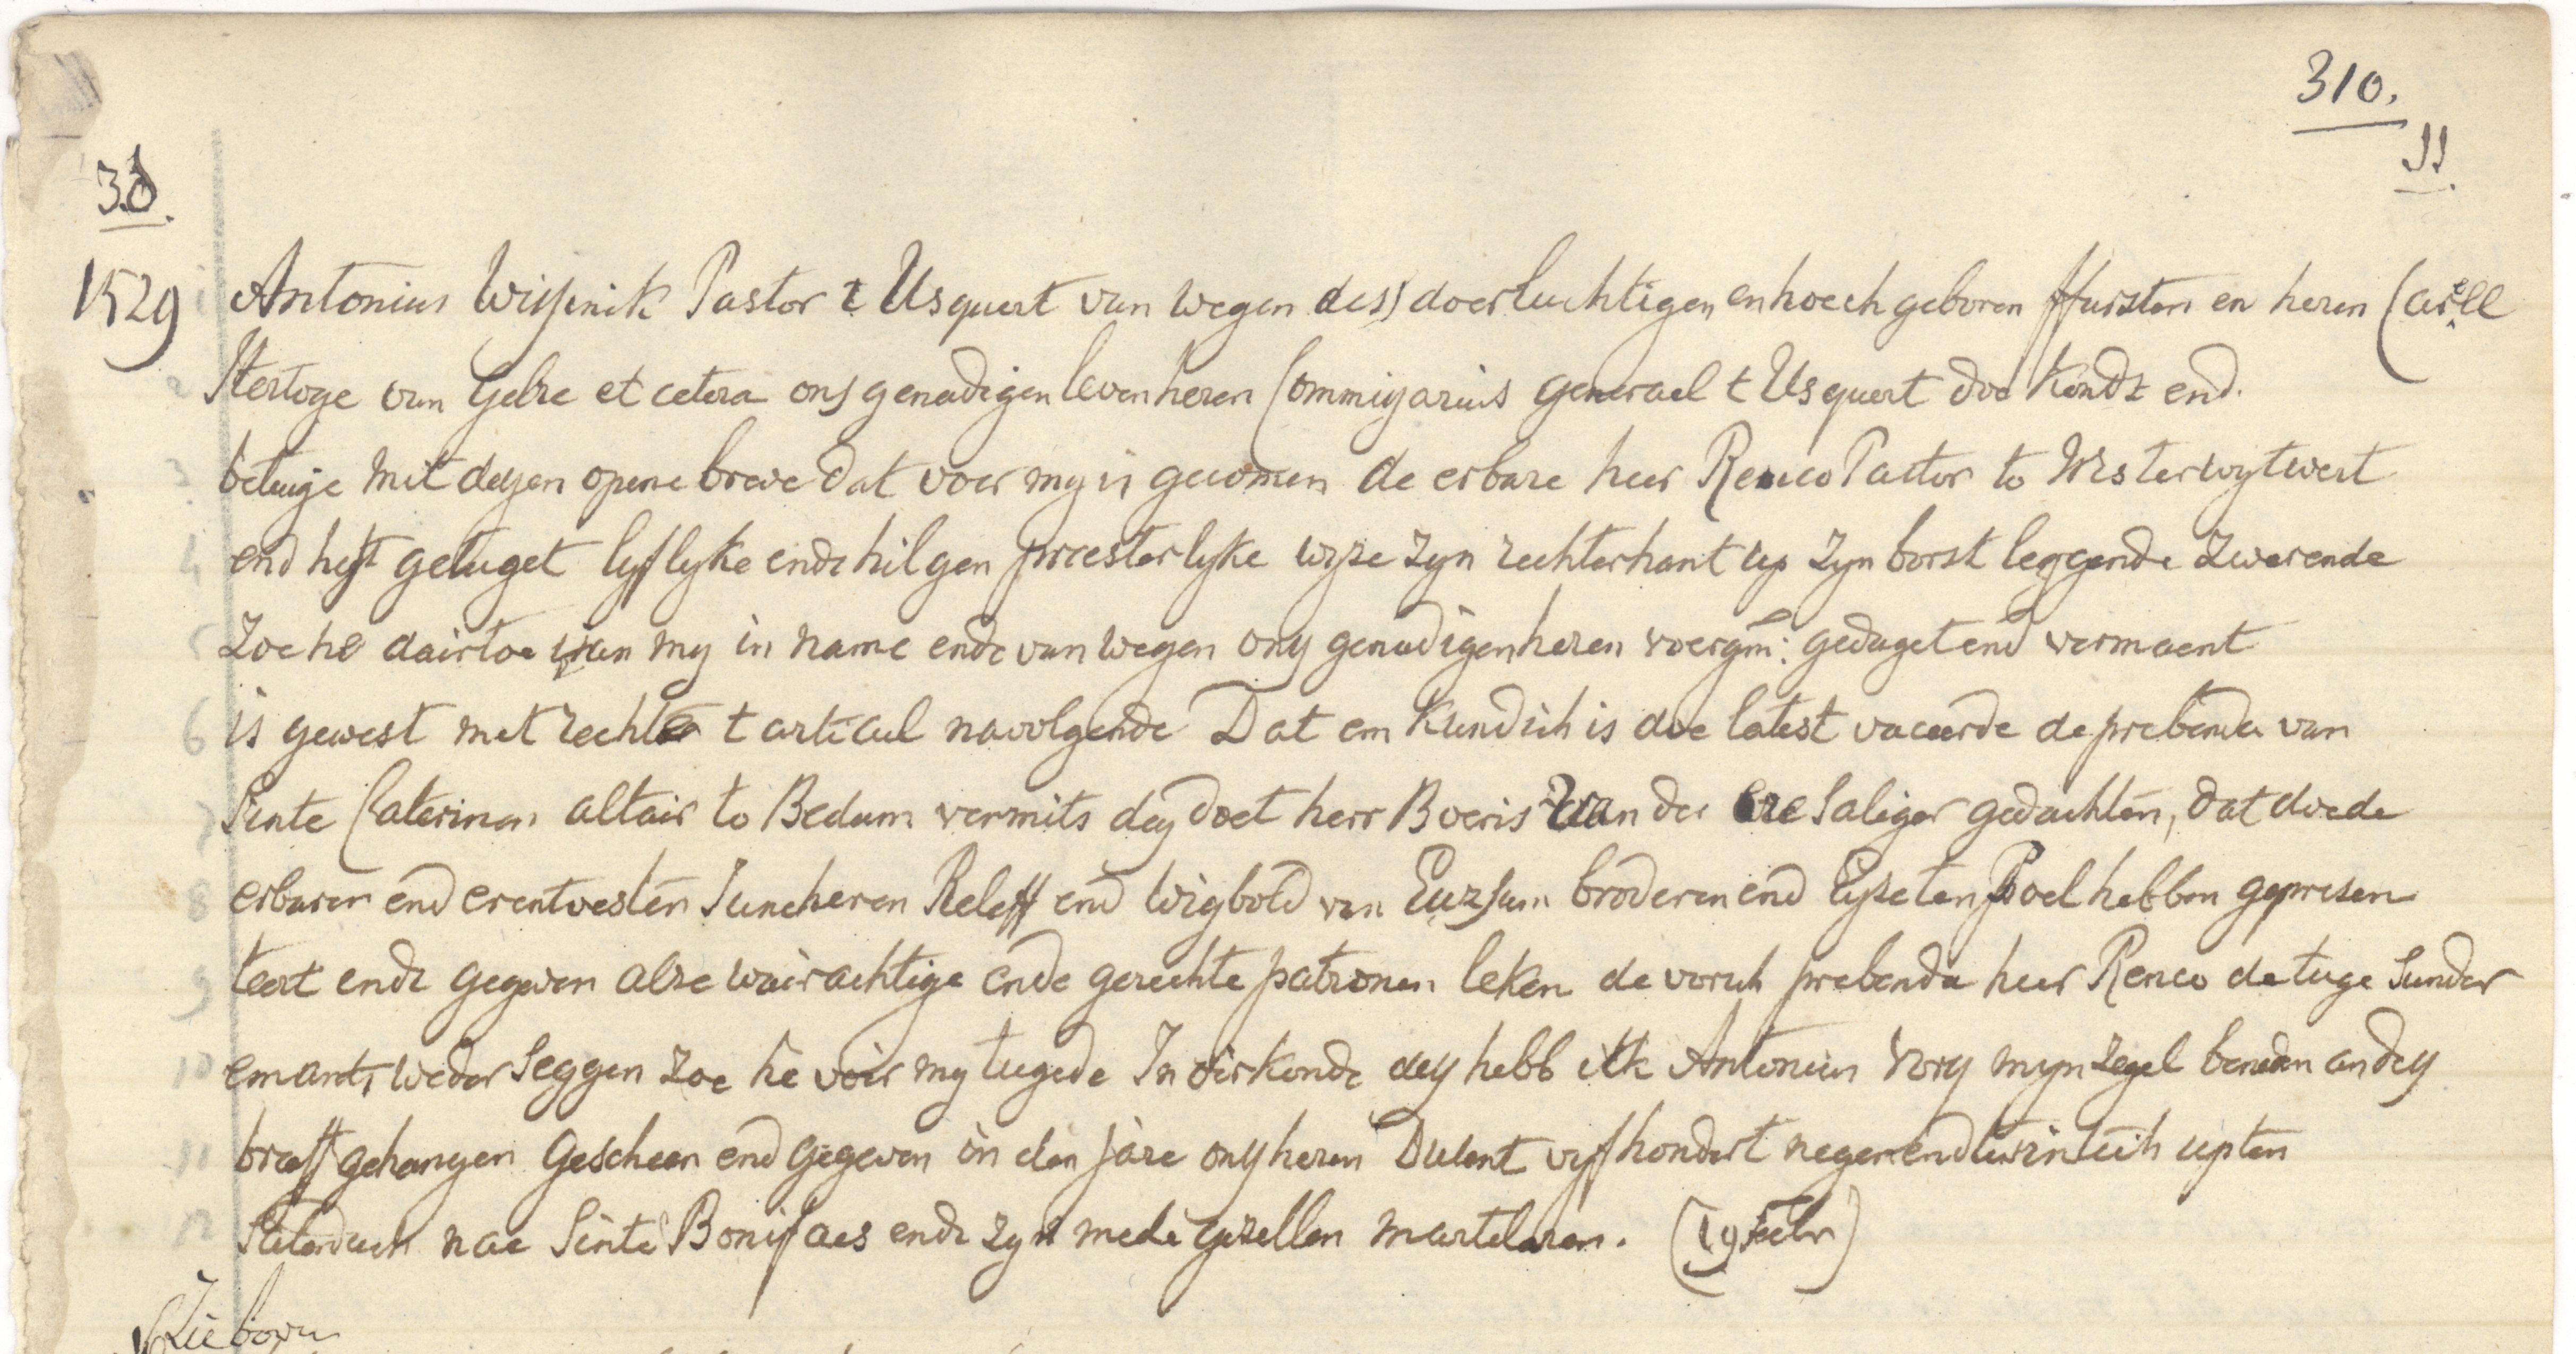 310.
11.
38.
1529
1 Antonius Wissinck Pastor t Usquert van wegen dess doerluchtigen en hoech geboren ffursten en heren Carell
2 Hertoge van Gelre et cetera ons genadigen leven heren Commissarius generael t Usquert doe kondt end.
3 betuige mit dessen opene breve dat voer my is gecomen de erbare heer Renico Pastor to Westerwytwert
4 end heft getuget lyflyke ende hilgen preesterlyke wyze zyn rechterhant up zyn borst leggende zwerende
5 zoe he dairtoe van my in name ende van wegen ons genadigen heren voergm: gedaget end vermaent
6 is gewest met rechte t articul navolgende Dat em kundich is doe latest vaceerde de prebende van
7 Sinte Caterinen altair to Bedum vermits des doet herr Boeris van der Ere saliger gedachten, dat doede
8 erbaren end erentvesten Juncheren Releff end Wigbold van Euzsum broderen end Eyse ten Poel hebben gepresen
9 teert ende gegeven alze wairachtige ende gerechte patronen leken de vorsch prebenda heer Renco de tuge sunder
10 emants weder seggen zoe he voir my tugede In oirkonde des hebb ick Antonius vors myn zegel beneden an des
11 breff gehangen Gescheen end gegeven in den jare ons heren Dusent vyfhondert negen end twintich upten
12 Saterdach nae Sinte Bonifaes ende zyn mede gezellen martelaren. (19 Febr)
Zie boven